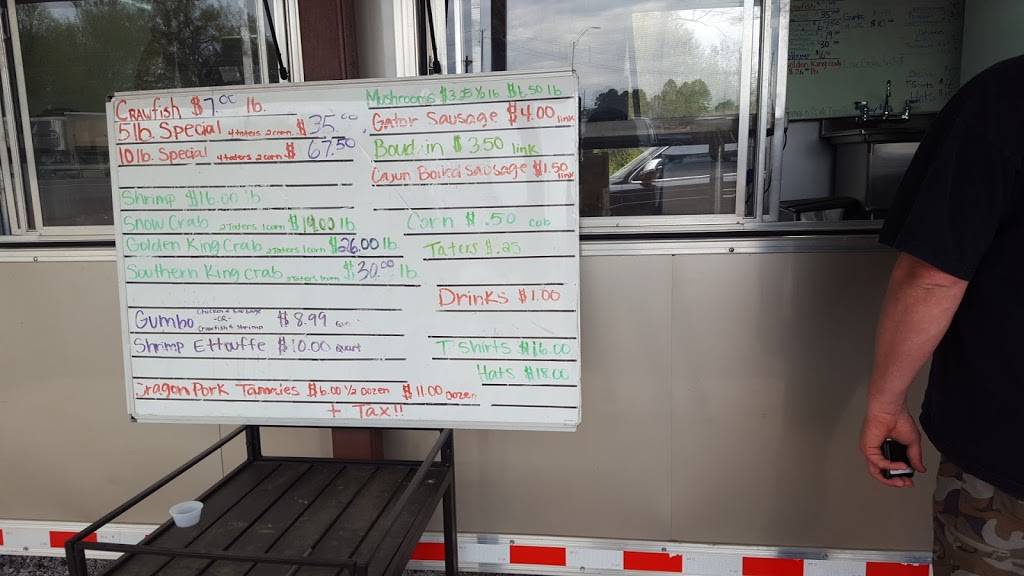 Crawfish $7.00 lb.
5 lb. Special 4 taters 2 corn $35.00
10 lb. Special 4 taters 2 corn $67.50
Shrimp $16.00 lb
Snow Crab 2 Taters 1 corn $19.00 lb
Golden King Crab 2 Taters 1 corn $26.00 lb.
Southern King crab 2 Taters 1 corn $30.00 lb
Gumbo Chicken & Sausage -OR- Crawfish & Shrimp $8.99
Shrimp Ettouffe $10.00 Quart
Dragon Pork Tammies $6.00 1/2 Dozen $11.00 Dozen
+ Tax!!
Mushrooms $3.25 1/2 lb $6.50 lb
Gator Sausage $4.00 link
Boudin $3.50 link
Cajun Boiled Sausage $1.50 link
Corn $.50 cob
Taters $.25
Drinks $1.00
T-shirts $16.00
Hats $18.00